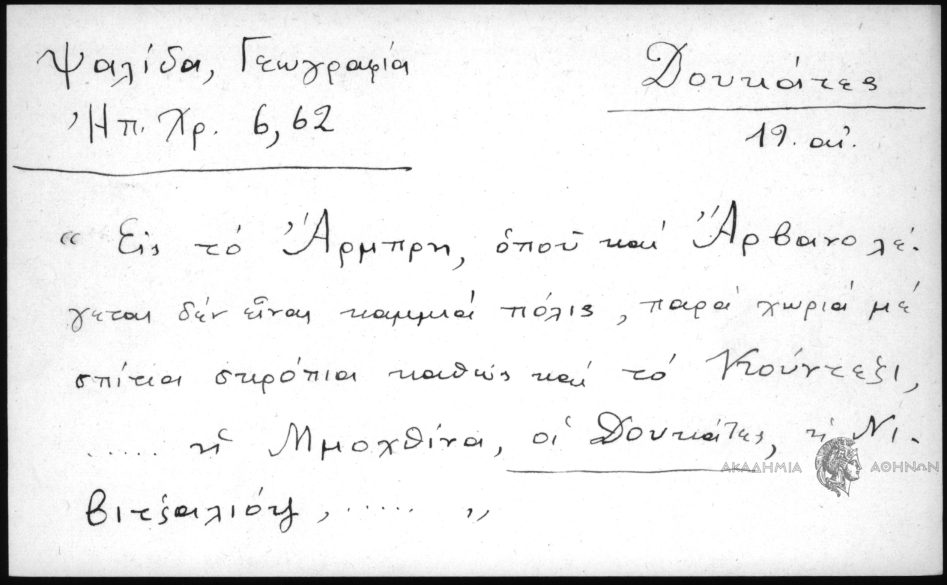 Ψαλίδα, Γεωγραφία
Ἠπ. Χρ. 6, 62
Δουκάτες
19. αἰ.
“ Εἰς τό Ἄρμπρη, ὁποῦ καί Ἄρβανο λέ-
γεται δέν εἶναι καμμιά πόλις, παρά χωριά μέ
σπίτια σκρόπια καθώς καί τό Κιούντεζι,
..... ἡ Μμοχθίνα, οἱ Δουκάτες, ἡ Νι-
βιτζαλιότη, ..... „
ΑΚΑΔΗΜΙΑ ΑΘΗΝΩΝ